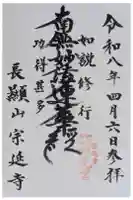 令和八年四月六日参拝
如説修行
南無妙法蓮華経
功徳甚多
長願山宗延寺